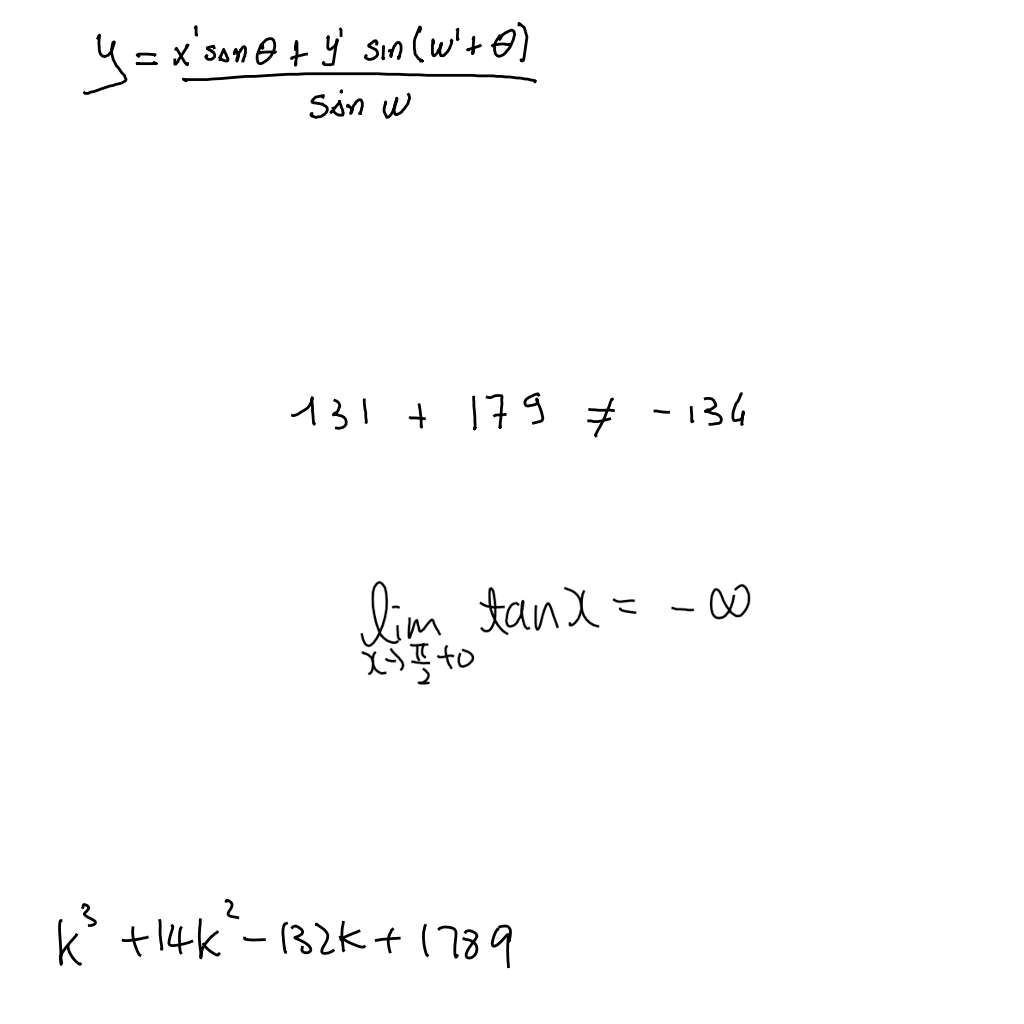 y = \frac{x' \sin \theta + y' \sin (w' + \theta)}{\sin w}
131 + 179 ≠ -134
\lim_{x \to \frac{\pi}{2} + 0} \tan x = -\infty
k^3 + 14k^2 - 132k + 1789